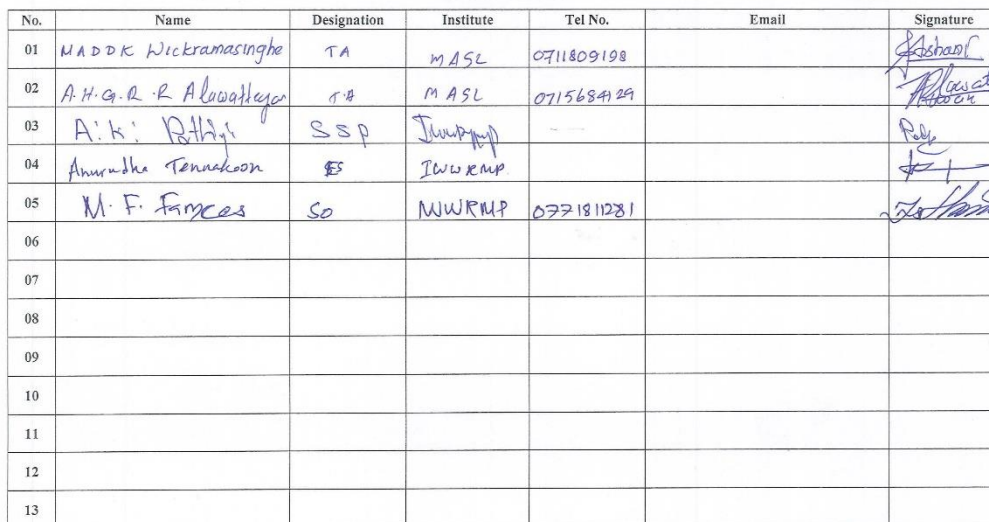 No. Name Designation Institute Tel No. Email Signature
01 MADDK Wickramasinghe TA MASL 0711809198
02 A.H.G.R.R Alawattegar T.A MASL 0715684129
03 A. K. SSP
04 Anurudha Tennakoon ES IWWRMP
05 M. F. MWRMP 0771811281
06
07
08
09
10
11
12
13